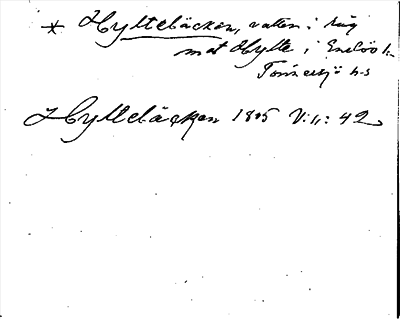 * Hyltebäcken, vatten i
mot Hylte i Enslöv k:
Tönnersjö h-s
Hyltebäcken 1805 V:1: 42